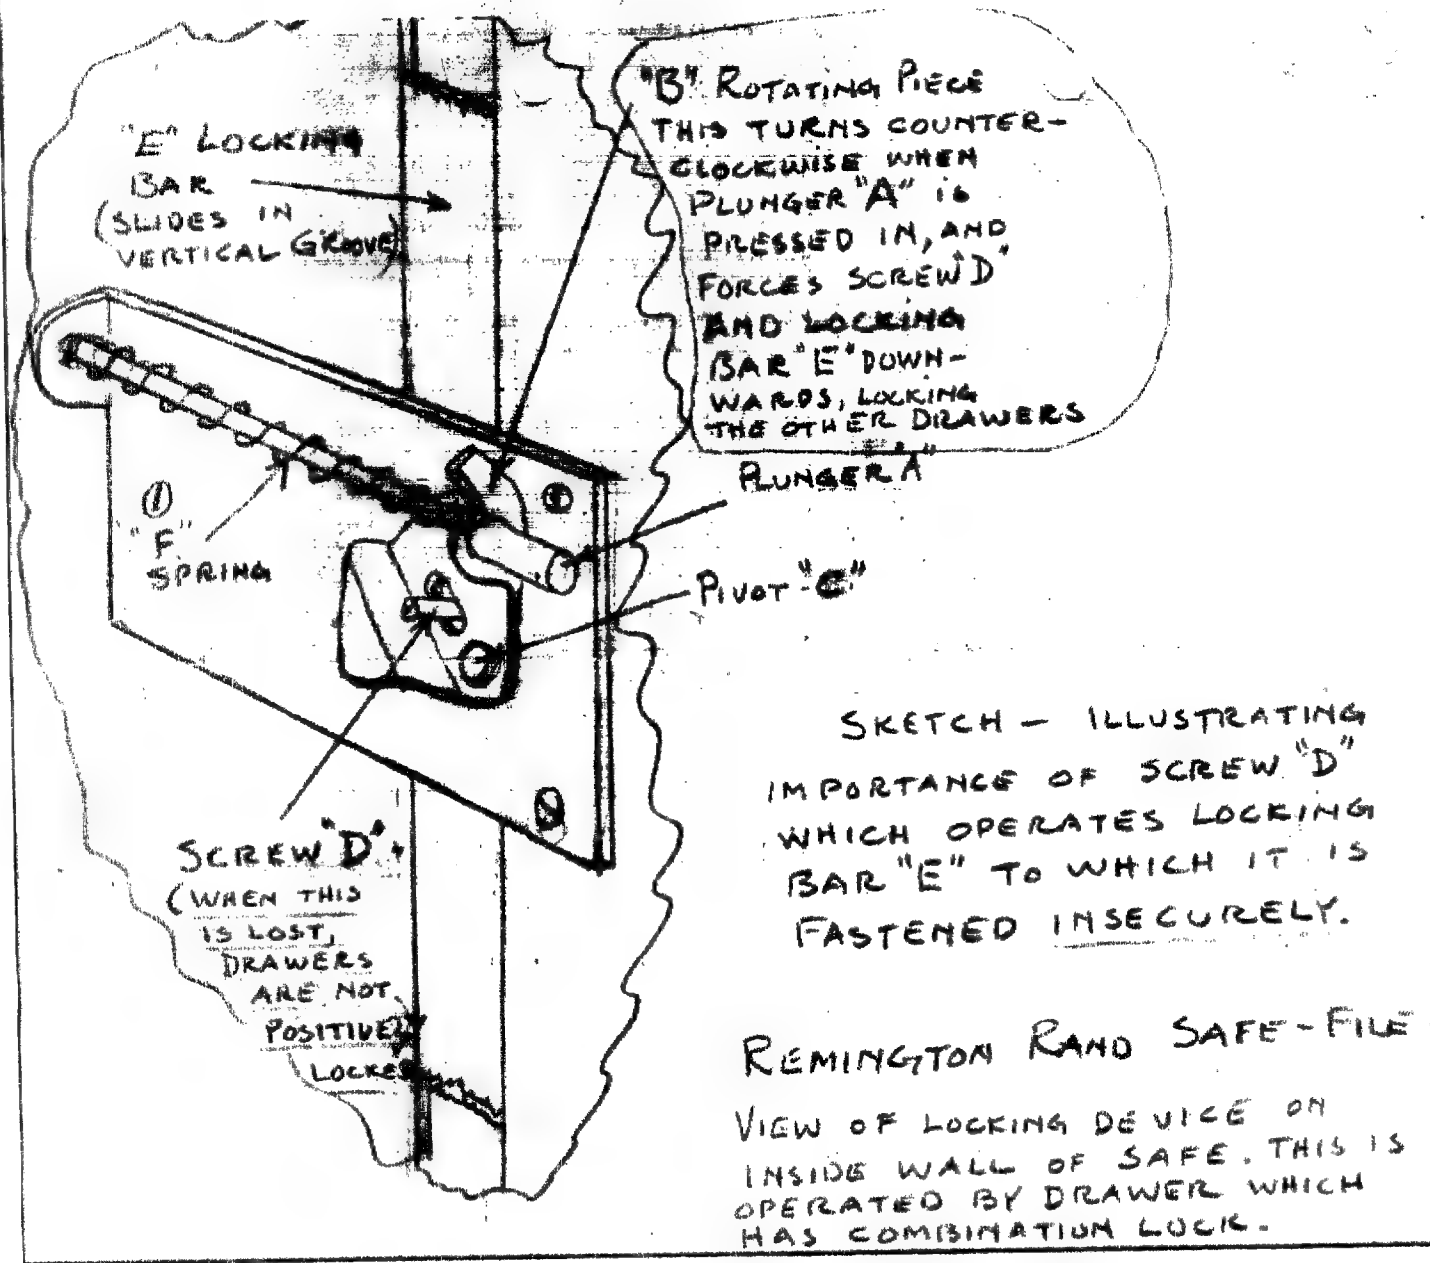 "E" LOCKING
BAR
(SLIDES IN
VERTICAL GROOVE)
"B" ROTATING PIECE
THIS TURNS COUNTER-
CLOCKWISE WHEN
PLUNGER "A" IS
PRESSED IN, AND
FORCES SCREW "D"
AND LOCKING
BAR "E" DOWN-
WARDS, LOCKING
THE OTHER DRAWERS
PLUNGER "A"
PIVOT "C"
①
"F"
SPRING
SCREW "D"
(WHEN THIS
IS LOST,
DRAWERS
ARE NOT
POSITIVELY
LOCKED
SKETCH - ILLUSTRATING
IMPORTANCE OF SCREW "D"
WHICH OPERATES LOCKING
BAR "E" TO WHICH IT IS
FASTENED INSECURELY.
REMINGTON RAND SAFE-FILE
VIEW OF LOCKING DEVICE ON
INSIDE WALL OF SAFE. THIS IS
OPERATED BY DRAWER WHICH
HAS COMBINATION LOCK.